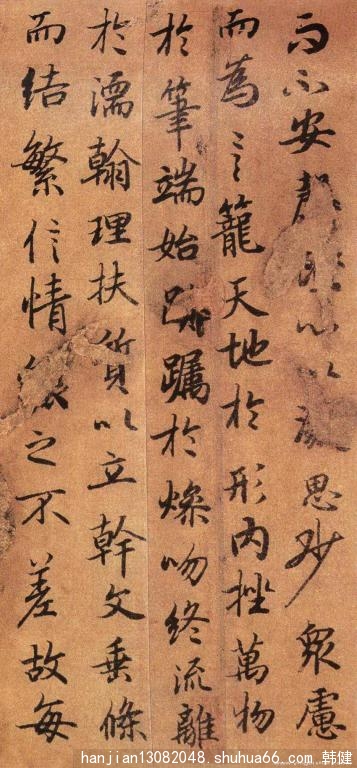 而不安心以思眇衆慮
而為言籠天地於形內挫萬物
於筆端始躅於燥吻終流離
於濡翰理扶質以立幹文垂條
而結繁信情之不差故每
hanjian13082048.shuhua66.com.韩健